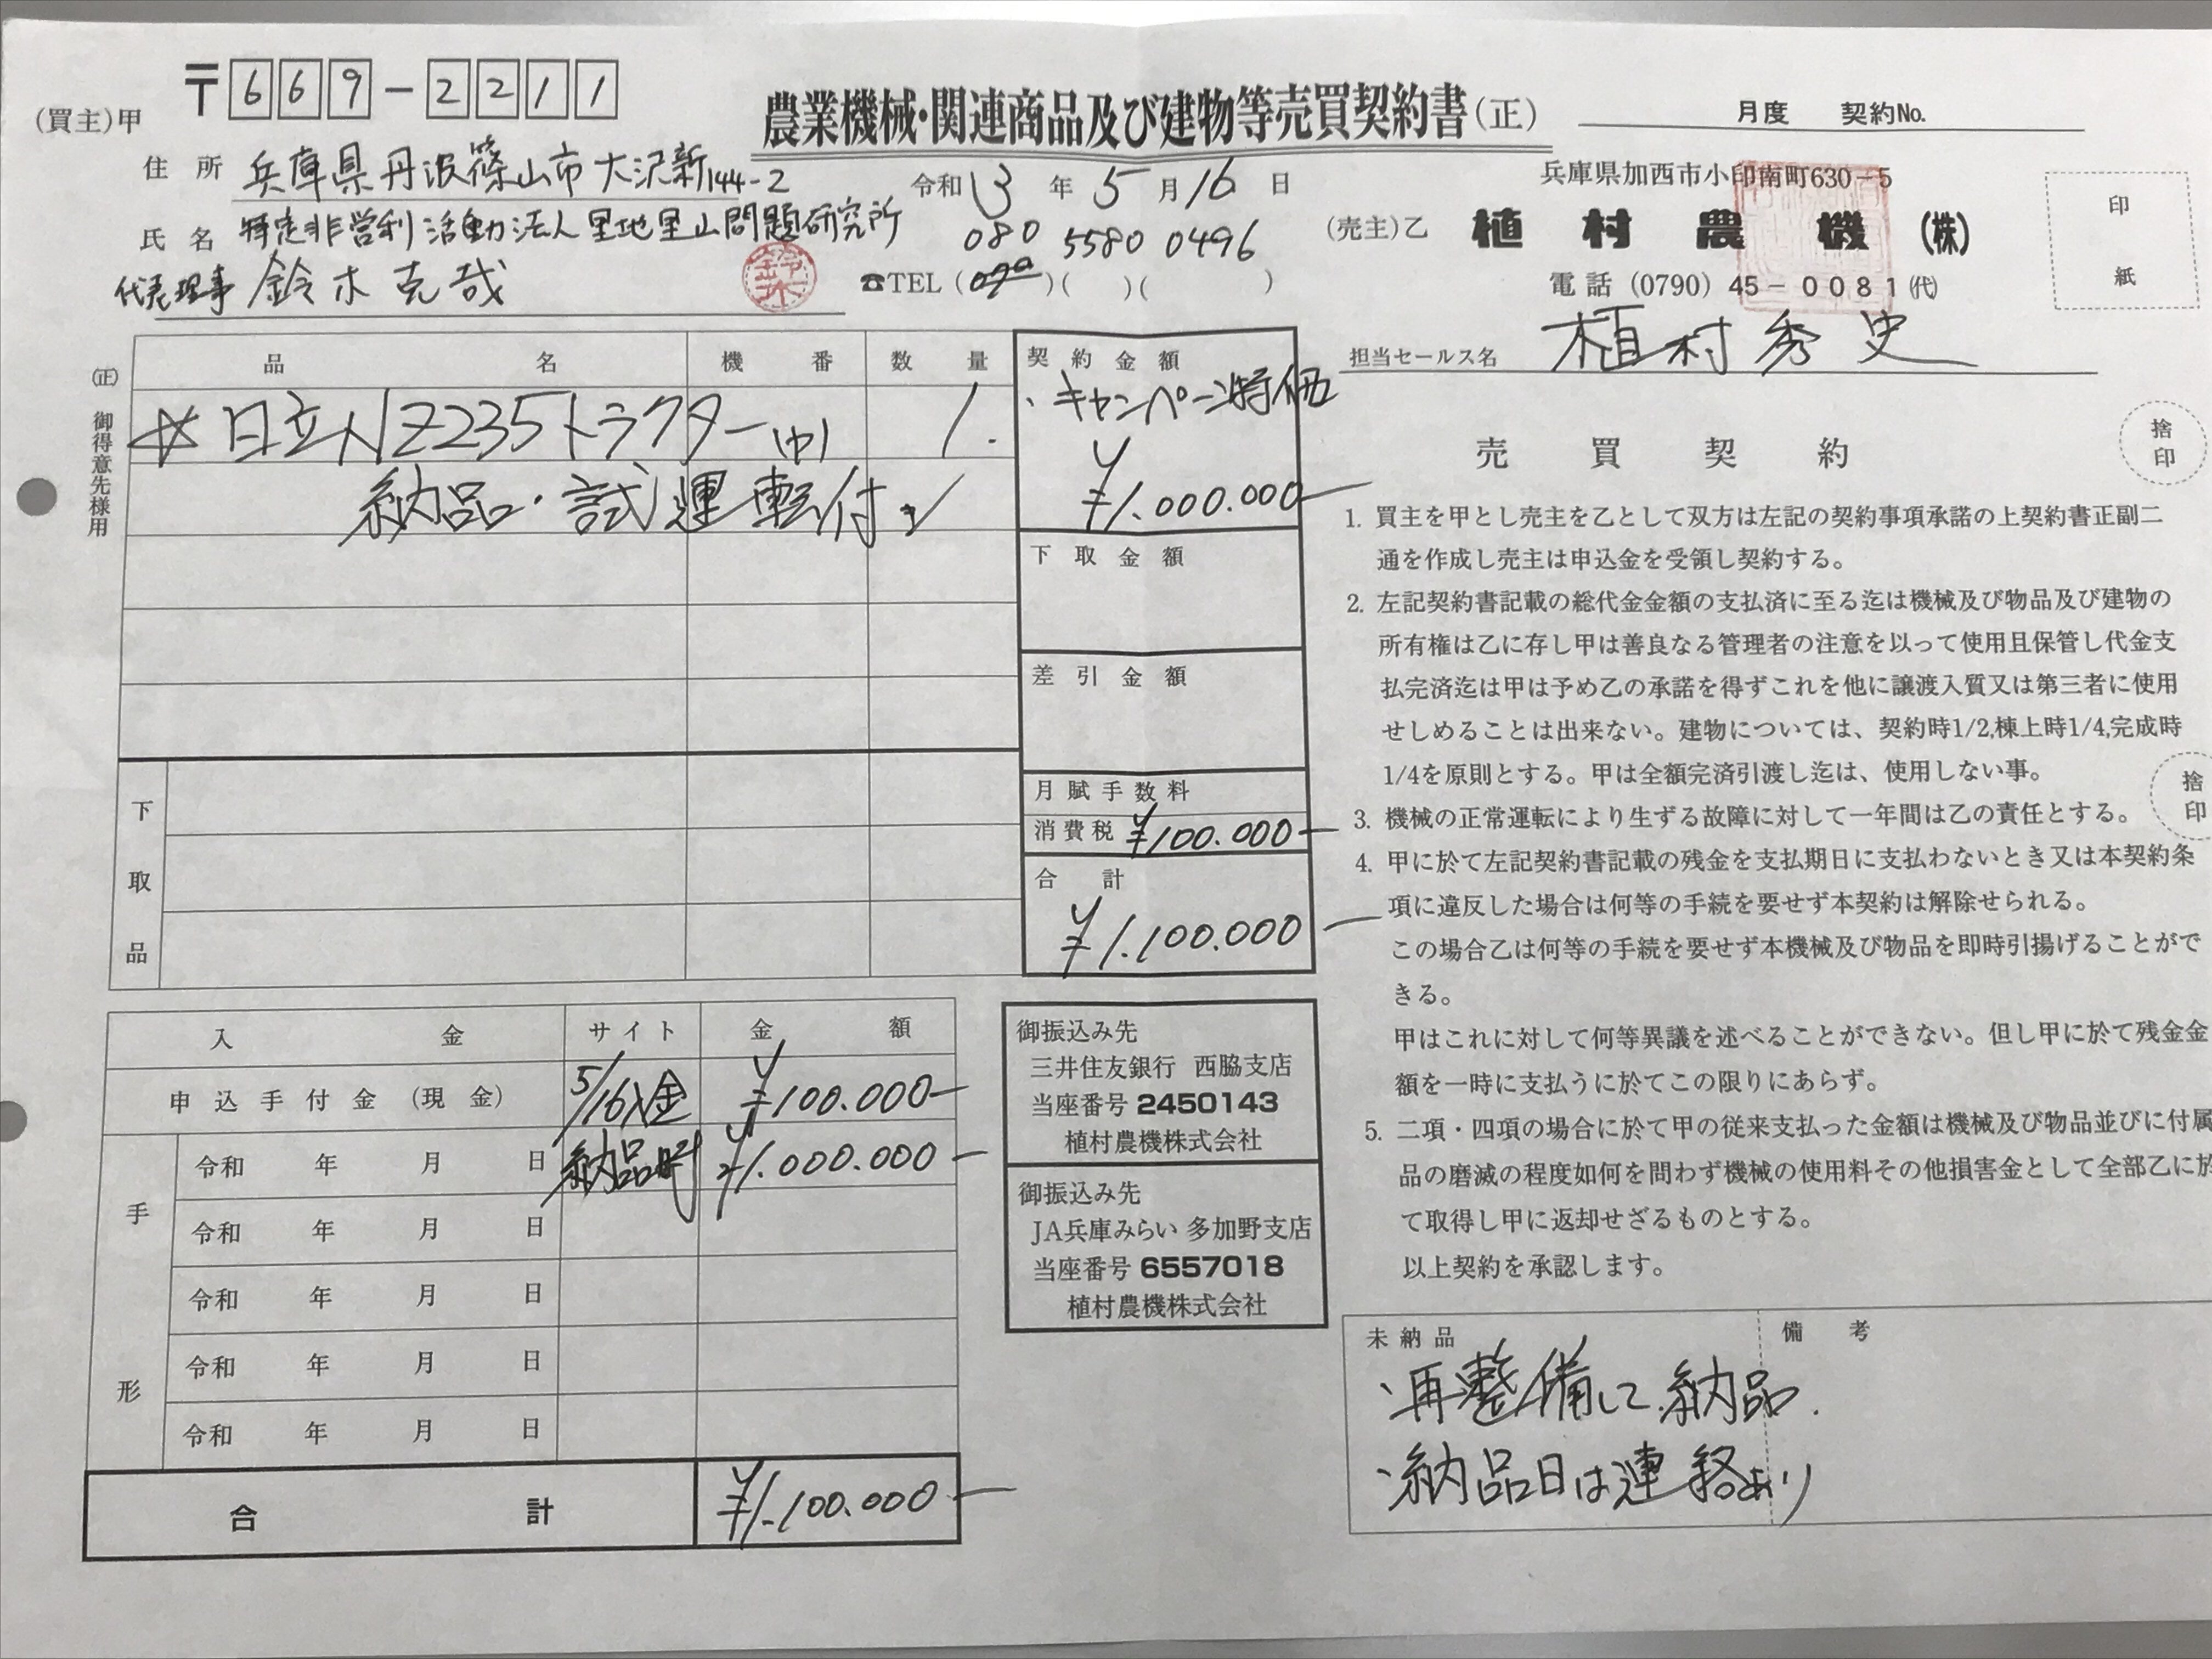 (買主)甲
〒669-2211
農業機械・関連商品及び建物等売買契約書(正)
月度 契約No.
住所 兵庫県丹波篠山市大沢新144-2
令和3年5月16日
氏名 特定非営利活動法人里地里山問題研究所
代表理事 鈴木克哉
鈴木
080 5580 0496
☎TEL ( )( )( )
兵庫県加西市小印南町630-5
(売主)乙 植村農機(株)
電話 (0790) 45-0081(代)
担当セールス名 植村秀史
印
紙
(正)
御得意先様用
品名 機番 数量
☆日立NZ235トラクター(中) 1.
納品・試運転付
契約金額
・キャンペーン特価
¥1.000.000
下取金額
差引金額
月賦手数料
消費税 ¥100.000
合計
¥1.100.000
下取品
入金 サイト 金額
申込手付金(現金) 5/16入金 ¥100.000
手形
令和 年 月 日 納品時 ¥1.000.000
令和 年 月 日
令和 年 月 日
令和 年 月 日
令和 年 月 日
合計 ¥1.100.000
御振込み先
三井住友銀行 西脇支店
当座番号 2450143
植村農機株式会社
御振込み先
JA兵庫みらい 多加野支店
当座番号 6557018
植村農機株式会社
売買契約
捨印
1. 買主を甲とし売主を乙として双方は左記の契約事項承諾の上契約書正副二
通を作成し売主は申込金を受領し契約する。
2. 左記契約書記載の総代金金額の支払済に至る迄は機械及び物品及び建物の
所有権は乙に存し甲は善良なる管理者の注意を以って使用且保管し代金支
払完済迄は甲は予め乙の承諾を得ずこれを他に譲渡入質又は第三者に使用
せしめることは出来ない。建物については、契約時1/2,棟上時1/4,完成時
1/4を原則とする。甲は全額完済引渡し迄は、使用しない事。
捨印
3. 機械の正常運転により生ずる故障に対して一年間は乙の責任とする。
4. 甲に於て左記契約書記載の残金を支払期日に支払わないとき又は本契約条
項に違反した場合は何等の手続を要せず本契約は解除せられる。
この場合乙は何等の手続を要せず本機械及び物品を即時引揚げることがで
きる。
甲はこれに対して何等異議を述べることができない。但し甲に於て残金金
額を一時に支払うに於てこの限りにあらず。
5. 二項・四項の場合に於て甲の従来支払った金額は機械及び物品並びに付属
品の磨滅の程度如何を問わず機械の使用料その他損害金として全部乙に於
て取得し甲に返却せざるものとする。
以上契約を承認します。
未納品 備考
・再整備して納品.
・納品日は連絡あり